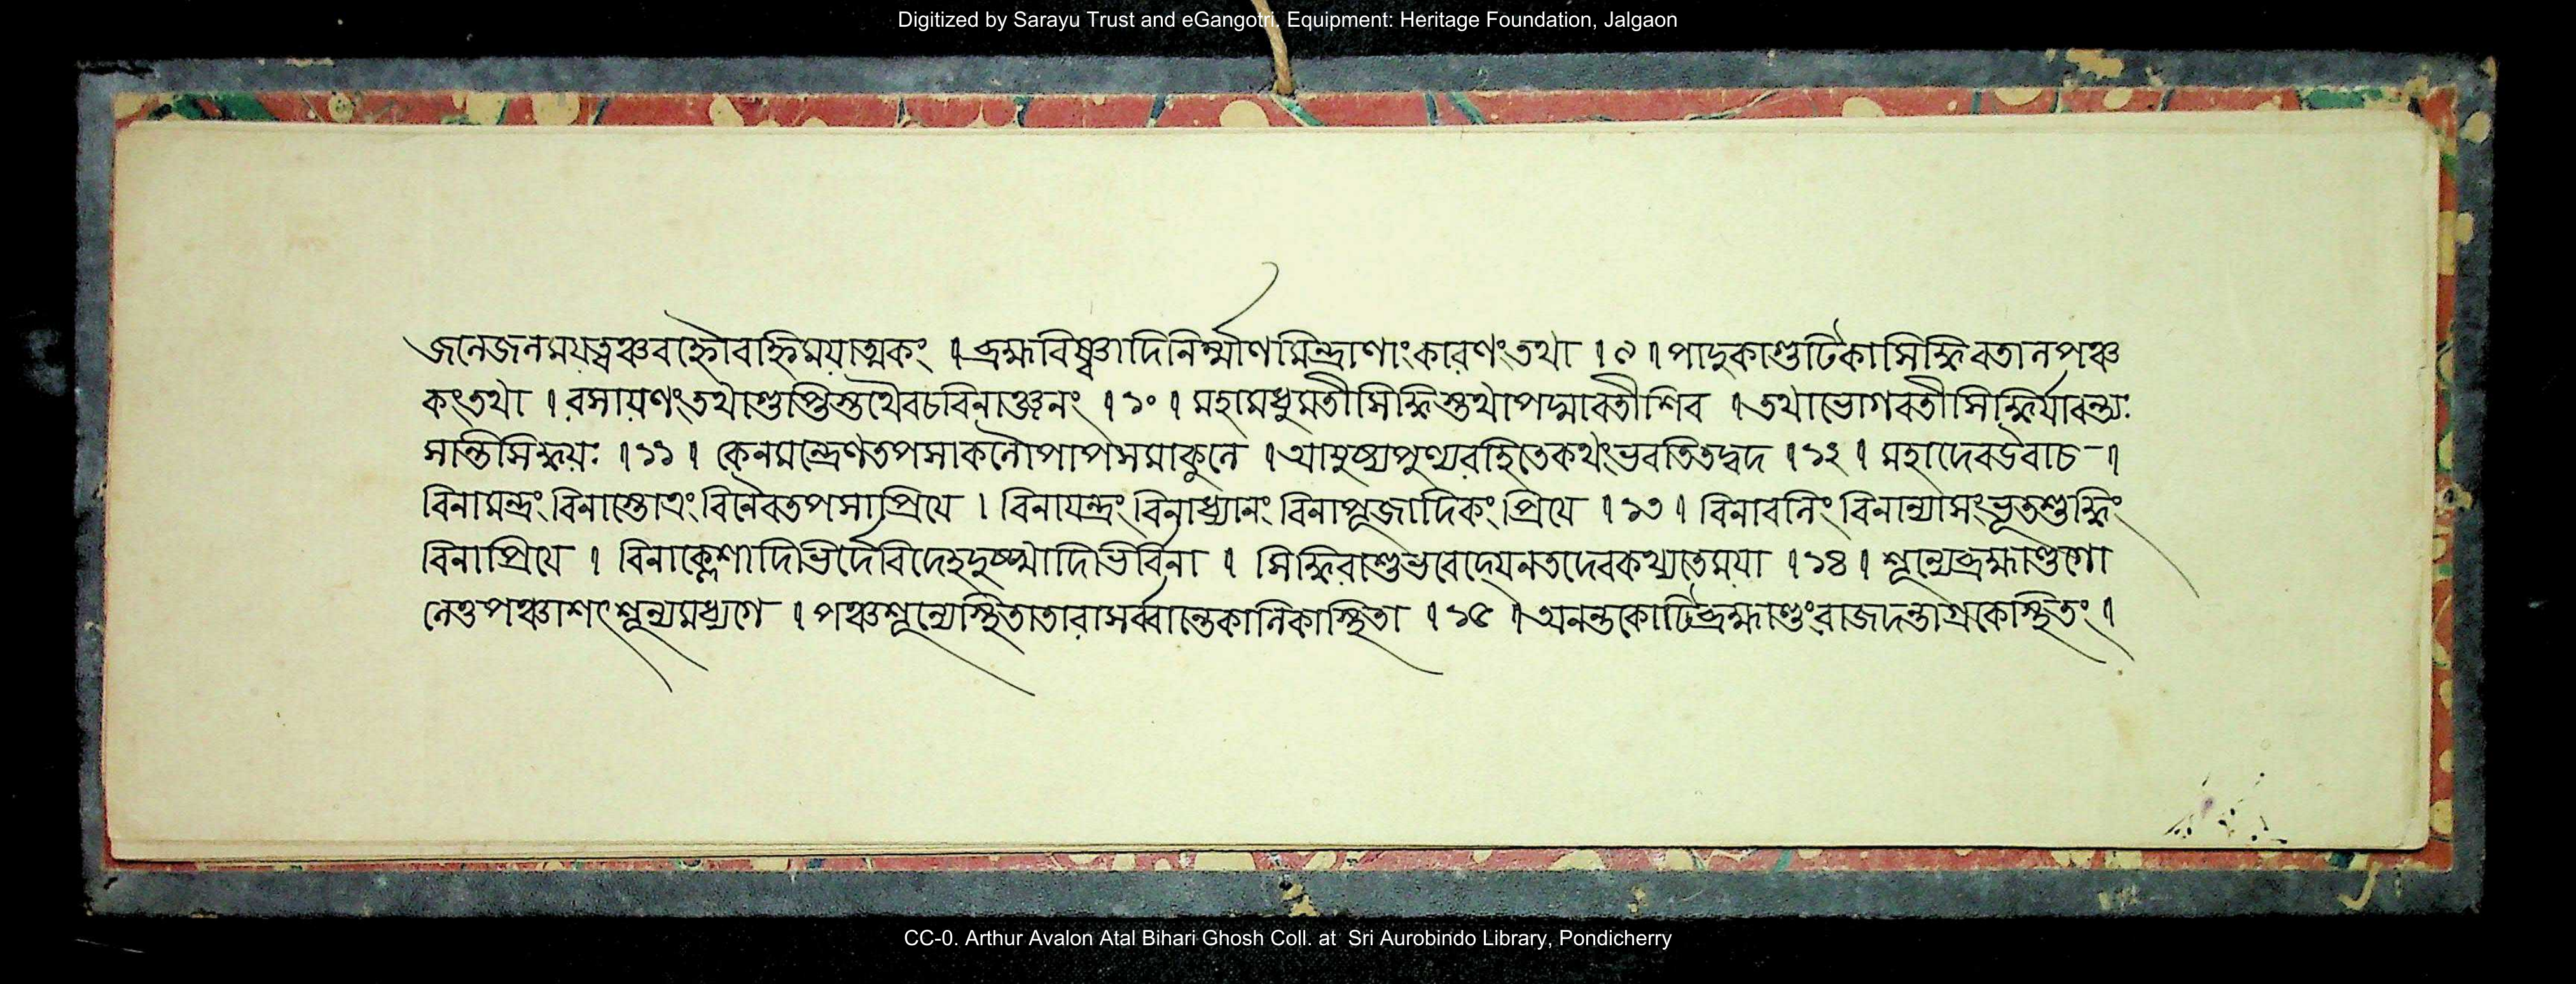 Digitized by Sarayu Trust and eGangotri. Equipment: Heritage Foundation, Jalgaon
জলেজলময়ত্বঞ্চবহ্নৌবহ্নিময়াত্মকং । ব্রহ্মবিষ্ণ্বাদিনির্ম্মাণমিন্দ্রাণাংকারণংতথা । ৯ । পাদুকাগুটিকাসিদ্ধিবেতালপঞ্চ
কংতথা । রসায়ণংতথাগুপ্তিস্তথৈবচবিলাঞ্জনং । ১০ । মহামধুমতীসিদ্ধিস্তথাপদ্মাবতীশিব । তথাভোগবতীসিদ্ধির্যাবন্ত্যঃ
সান্তিসিদ্ধয়ঃ । ১১ । কেনমন্ত্রেণতপসাকলৌপাপসমাকুলে । আয়ুষ্যপুণ্যরহিতেকথংভবতিতদ্বদ । ১২ । মহাদেবউবাচ - ।
বিনামন্ত্রং বিনাস্তোত্রং বিনৈবতপসাপ্রিয়ে । বিনাযন্ত্রং বিনাধ্যানং বিনাপূজাদিকং প্রিয়ে । ১৩ । বিনাবলিং বিনান্যাসংভূতশুদ্ধিং
বিনাপ্রিয়ে । বিনাক্লেশাদিভির্দেবিদেহদুঃখাদিভির্বিনা । সিদ্ধিরাশুভবেদ্যেনতদেবকথ্যতেময়া । ১৪ । শূন্যেব্রহ্মাণ্ডগো
লেতুপঞ্চাশৎশূন্যমধ্যগে । পঞ্চশূন্যেস্থিতাতারাসর্ব্বান্তেকালিকাস্থিতা । ১৫ । অনন্তকোটিব্রহ্মাণ্ডংরাজদন্তাগ্রকেস্থিতং ।
CC-0. Arthur Avalon Atal Bihari Ghosh Coll. at Sri Aurobindo Library, Pondicherry